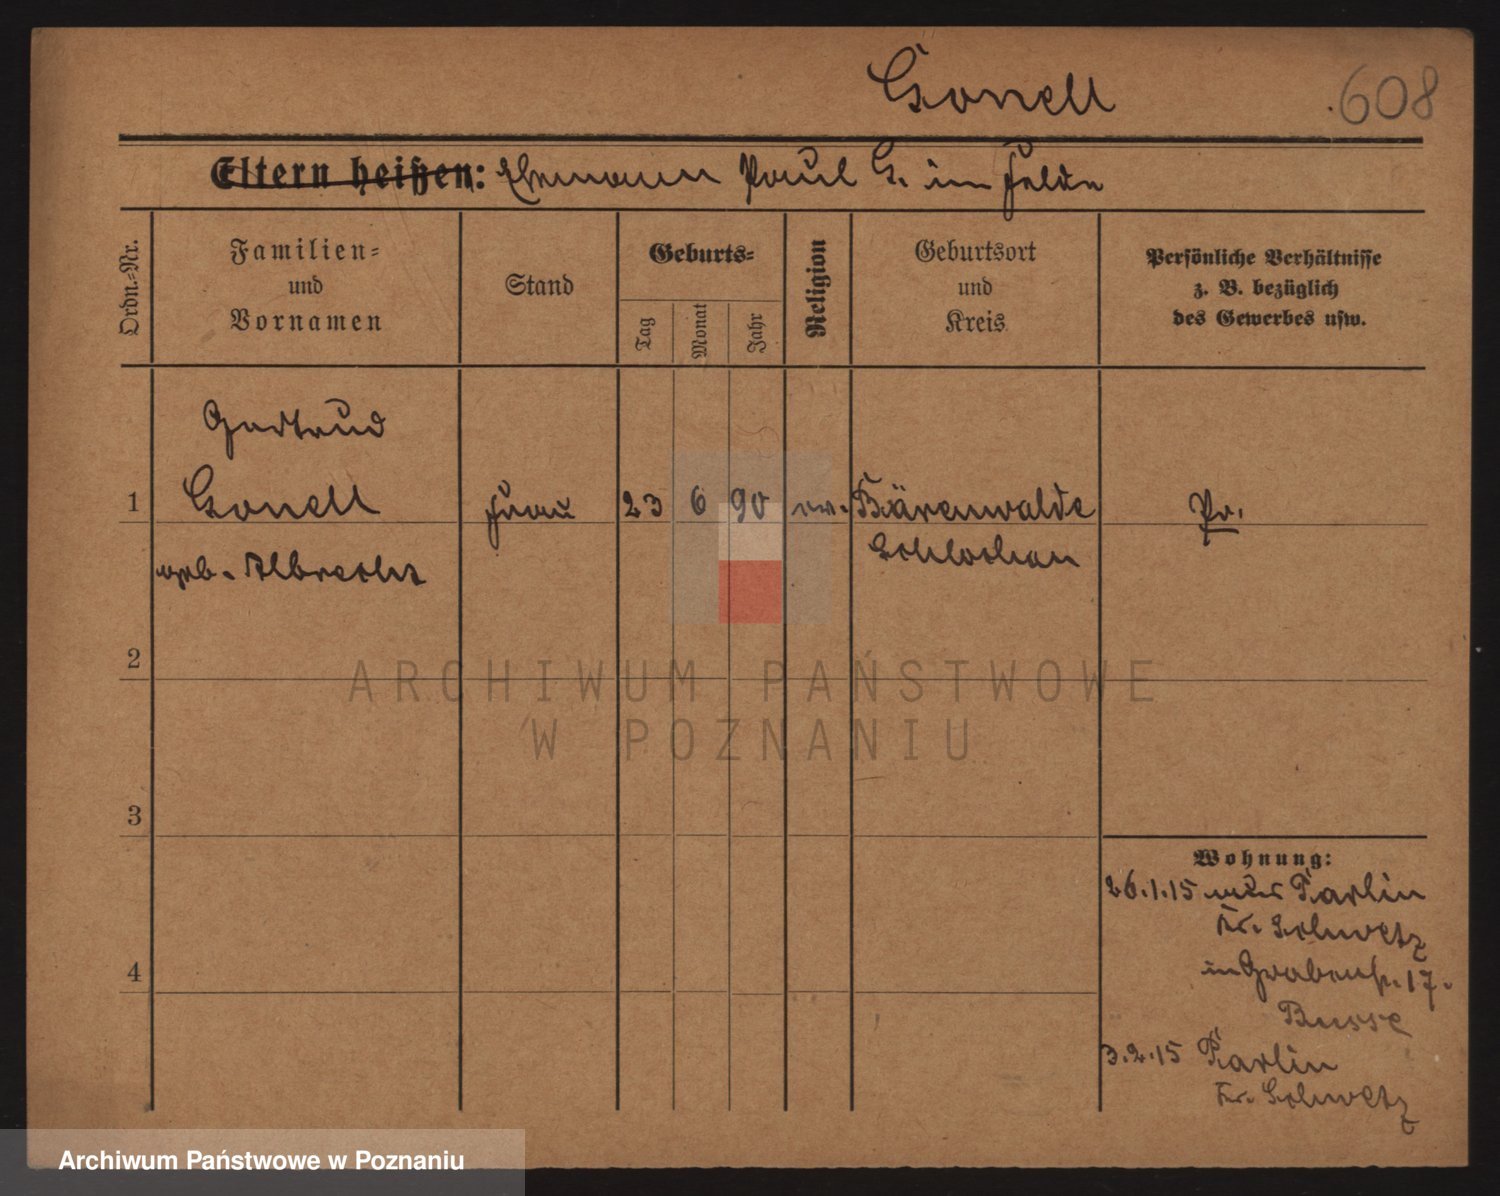 Gonell
608
Eltern heißen: Ehemann Paul G. im Felde
Ordn.-Nr.
Familien-
und
Vornamen
Stand
Geburts-
Tag
Monat
Jahr
Religion
Geburtsort
und
Kreis
Persönliche Verhältnisse
z. B. bezüglich
des Gewerbes usw.
Gertrud
1 Gonell Frau 23 6 90 ev. Bärenwalde Pr.
geb. Albrecht Schlochau
2
ARCHIWUM PAŃSTWOWE
W POZNANIU
3
Wohnung:
26.1.15 aus Parlin
Kr. Schwetz
4
in Grabenstr. 17.
Busse
3.2.15 Parlin
Kr. Schwetz
Archiwum Państwowe w Poznaniu